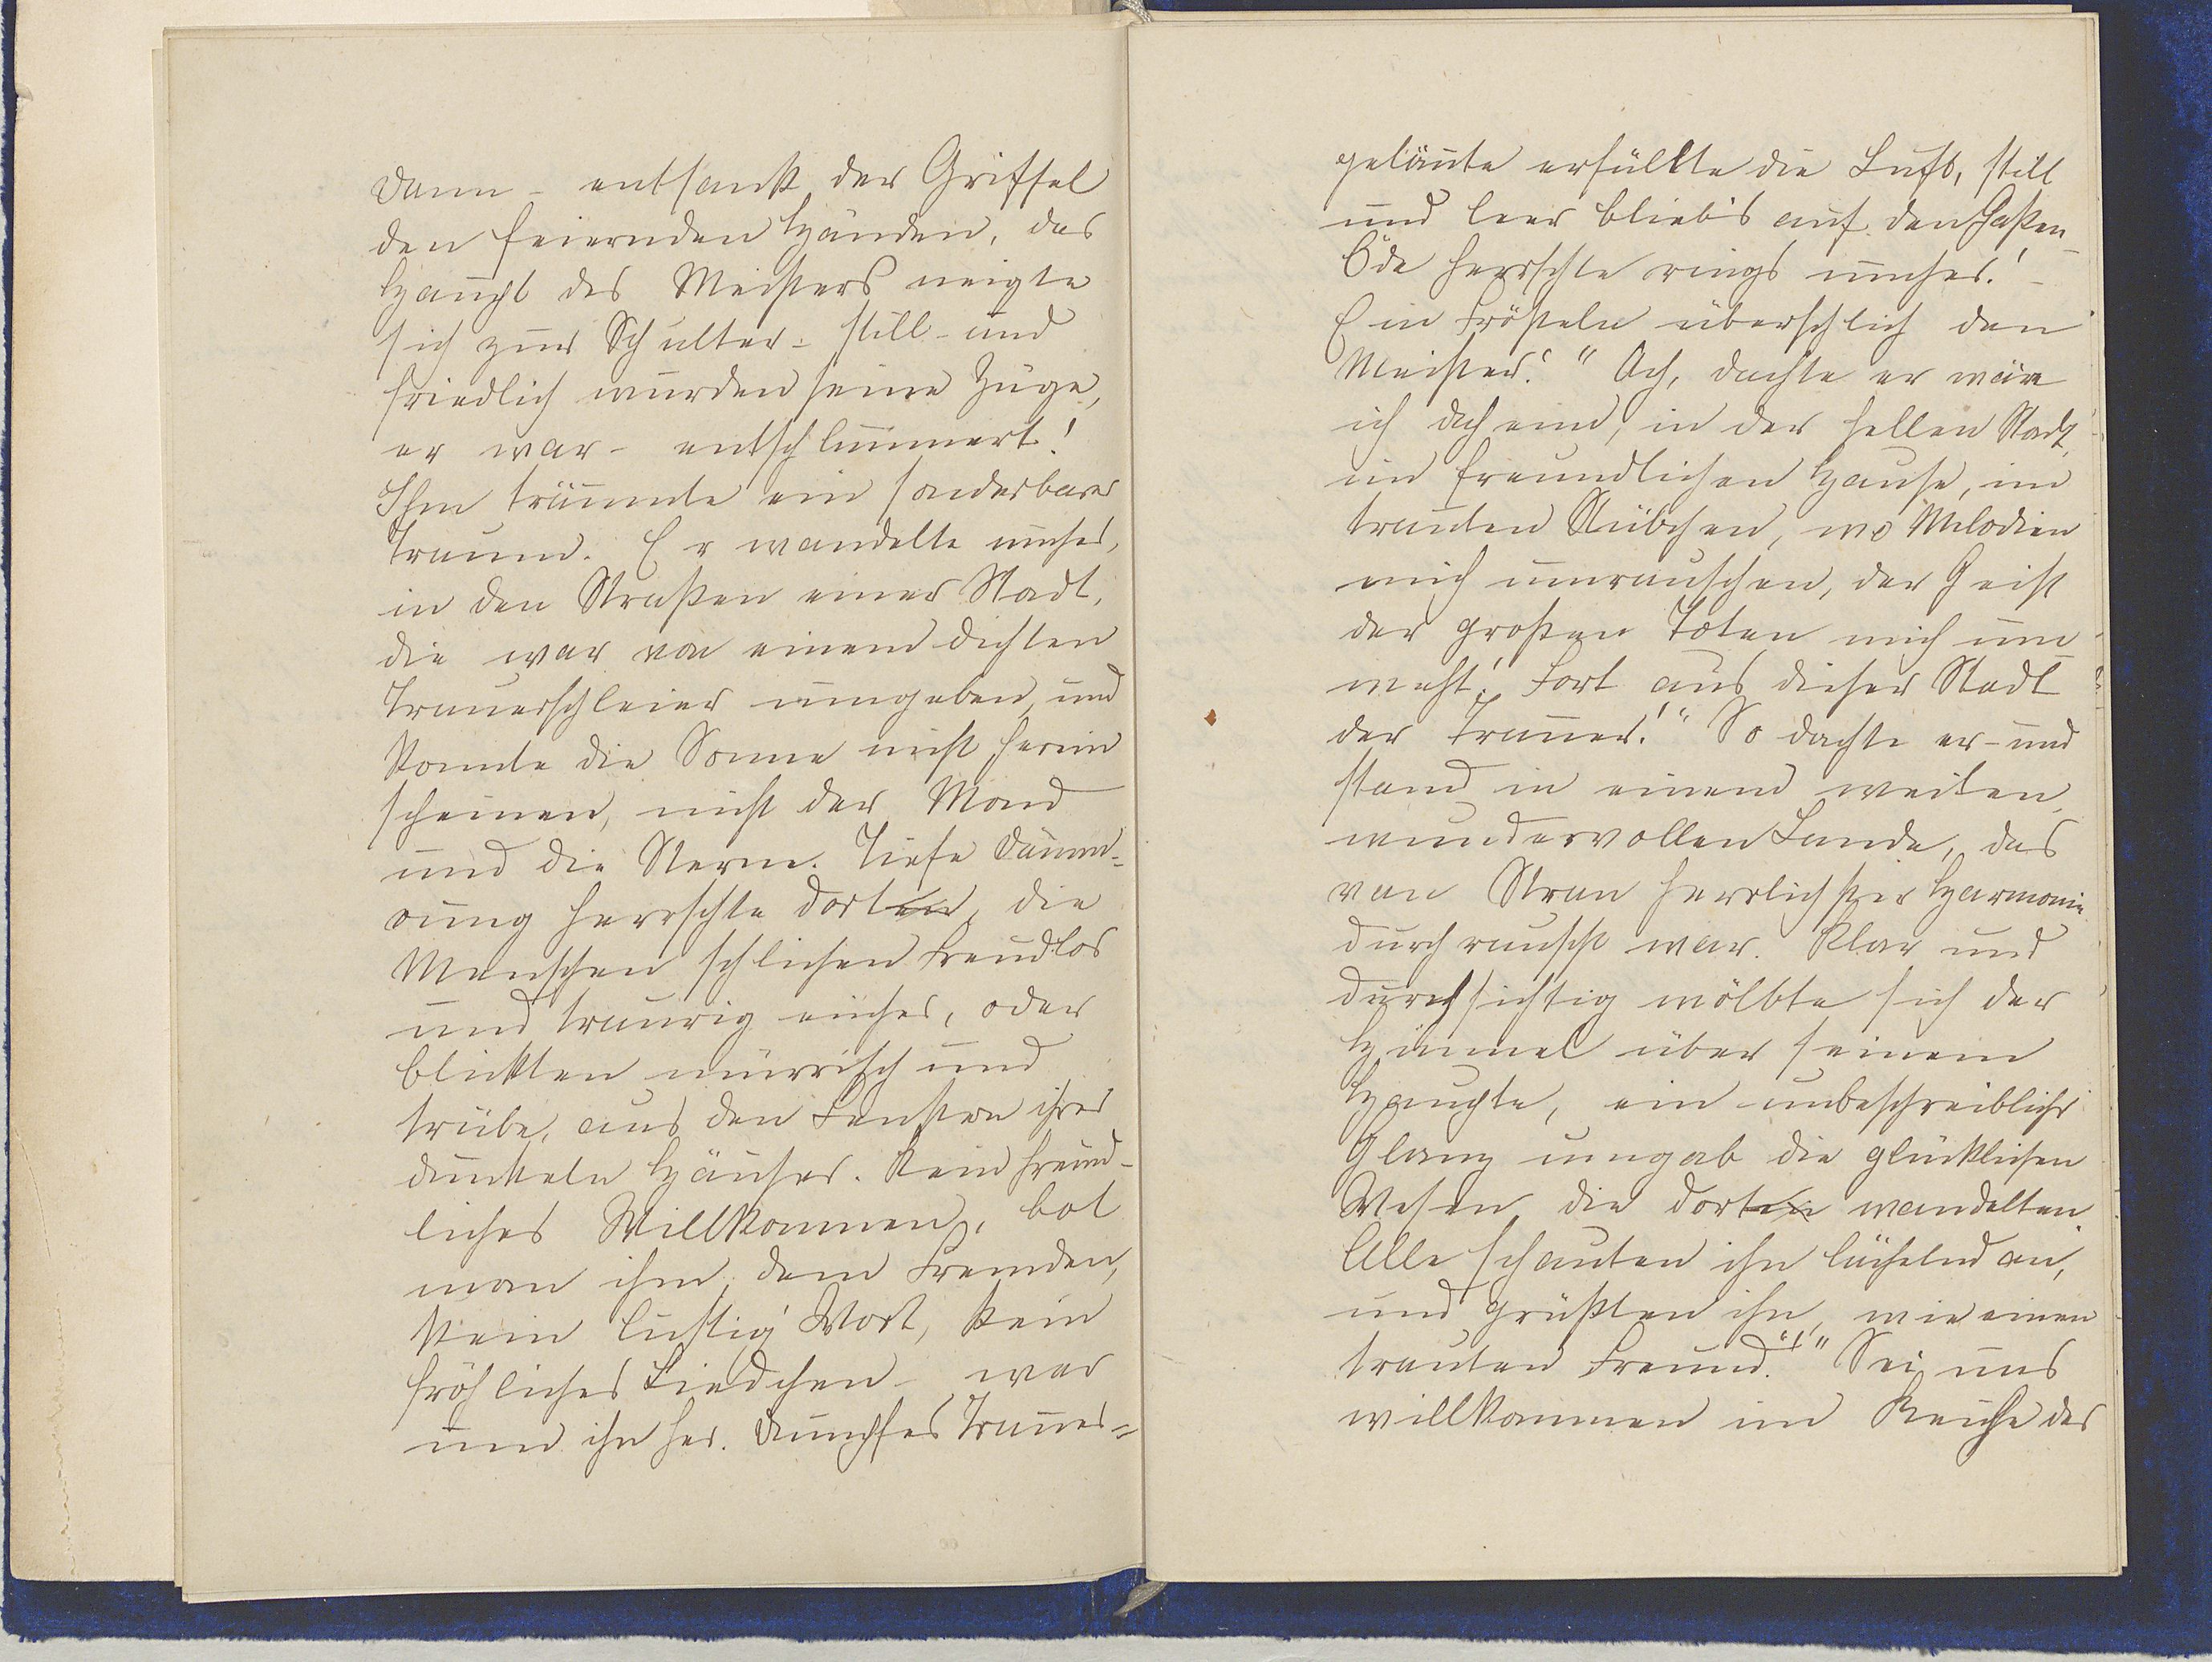 Dann - entsank der Griffel
den feiernden Händen, das
Haupt des Meisters neigte
sich zur Schulter - still - und
friedlich wurden seine Züge,
er war - entschlummert!
Ihm träumte ein sonderbarer
Traum. Er wandelte umher,
in den Straßen einer Stadt,
die war von einem dichten
Trauerschleier umgeben, und
konnte die Sonne nicht herein
scheinen, nicht der Mond
und die Sterne. Tiefe Dämm-
rung herrschte dorten, die
Menschen schlichen freudlos
und traurig einher, oder
blickten mürrisch und
trübe, aus den Fenstern ihrer
dunkeln Häuser. Kein freund-
liches Willkommen, bot
man ihm, dem Fremden,
kein lustig' Wort, kein
fröhliches Liedchen - war
um ihn her. Dumpfes Trauer=
geläute erfüllte die Luft, still
und leer blieb's auf den Gaßen -
Öde herrschte rings umher! -
Ein Frösteln überschlich den
Meister! "Ach, dachte er wäre
ich daheim, in der hellen Stadt,
im freundlichen Hause, im
trauten Stübchen, wo Melodien
mich umrauschen, der Geist
der großen Toten mich um
weht! Fort aus dieser Stadt
der Trauer!" So dachte er - und
stand in einem weiten,
wundervollen Lande, das
von Strom herrlichster Harmonie
durchrauscht war. Klar und
durchsichtig wölbte sich der
Himmel über seinem
Haupte, ein unbeschreiblicher
Glanz umgab die glücklichen
Wesen die dorten wandelten.
Alle schauten ihn lächelnd an,
und grüßten ihn, wie einen
trauten Freund!" "Sei uns
willkommen im Reiche der